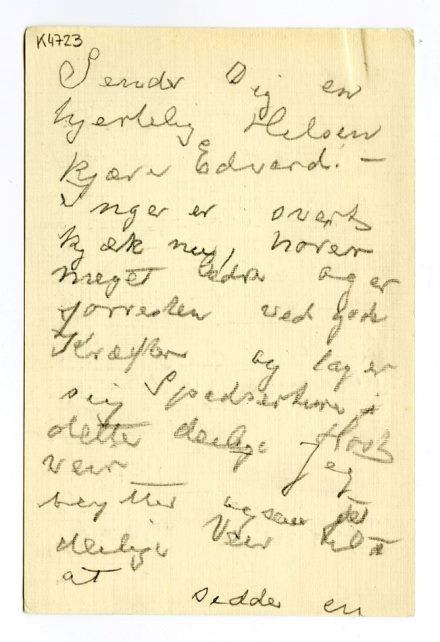 K4723
Sender Dig en
hjertelig Hilsen
kjære Edvard. –
Inger er svært
kjæk nu, hører
meget bedre og er
forresten ved gode
Kræfter og tager
sig Spadserture i
dette deilige Høst
veir Jeg
benytter ogsaa det
deilige Veir til
at
sidde en